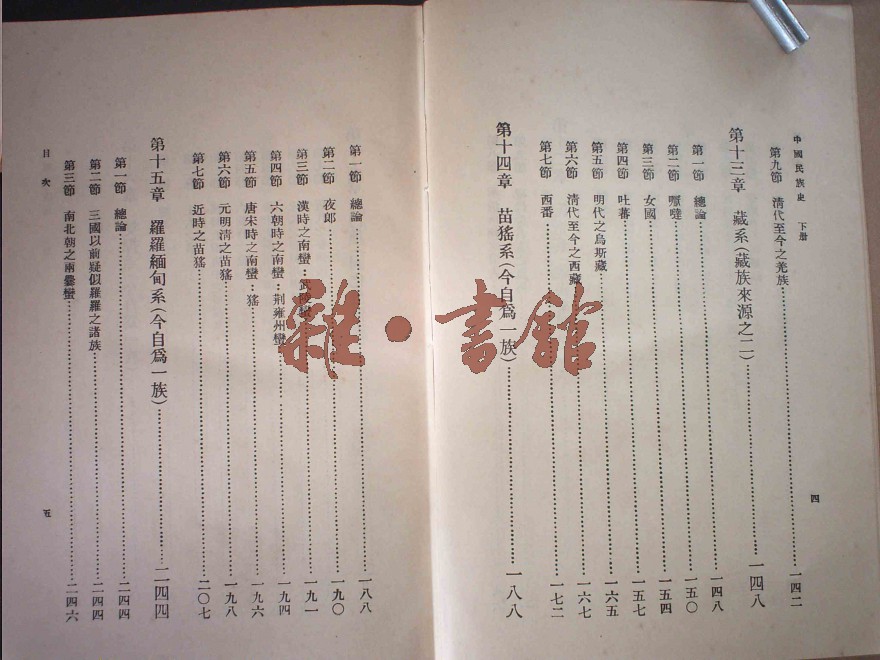 中國民族史 下册 四
第九節 清代至今之羌族 一四二
第十三章 藏系(藏族來源之二) 一四八
第一節 總論 一四八
第二節 嚈噠 一五〇
第三節 女國 一五四
第四節 吐蕃 一五七
第五節 明代之烏斯藏 一六五
第六節 清代至今之西藏 一六七
第七節 西番 一七二
第十四章 苗猺系(今自爲一族) 一八八
第一節 總論 一八八
第二節 夜郎 一九〇
第三節 漢時之南蠻:武陵蠻 一九一
第四節 六朝時之南蠻:荆雍州蠻 一九四
第五節 唐宋時之南蠻:猺 一九六
第六節 元明清之苗猺 一九八
第七節 近時之苗猺 二〇七
第十五章 羅羅緬甸系(今自爲一族) 二四四
第一節 總論 二四四
第二節 三國以前疑似羅羅之諸族 二四四
第三節 南北朝之兩爨蠻 二四六
目次 五
雜·書館